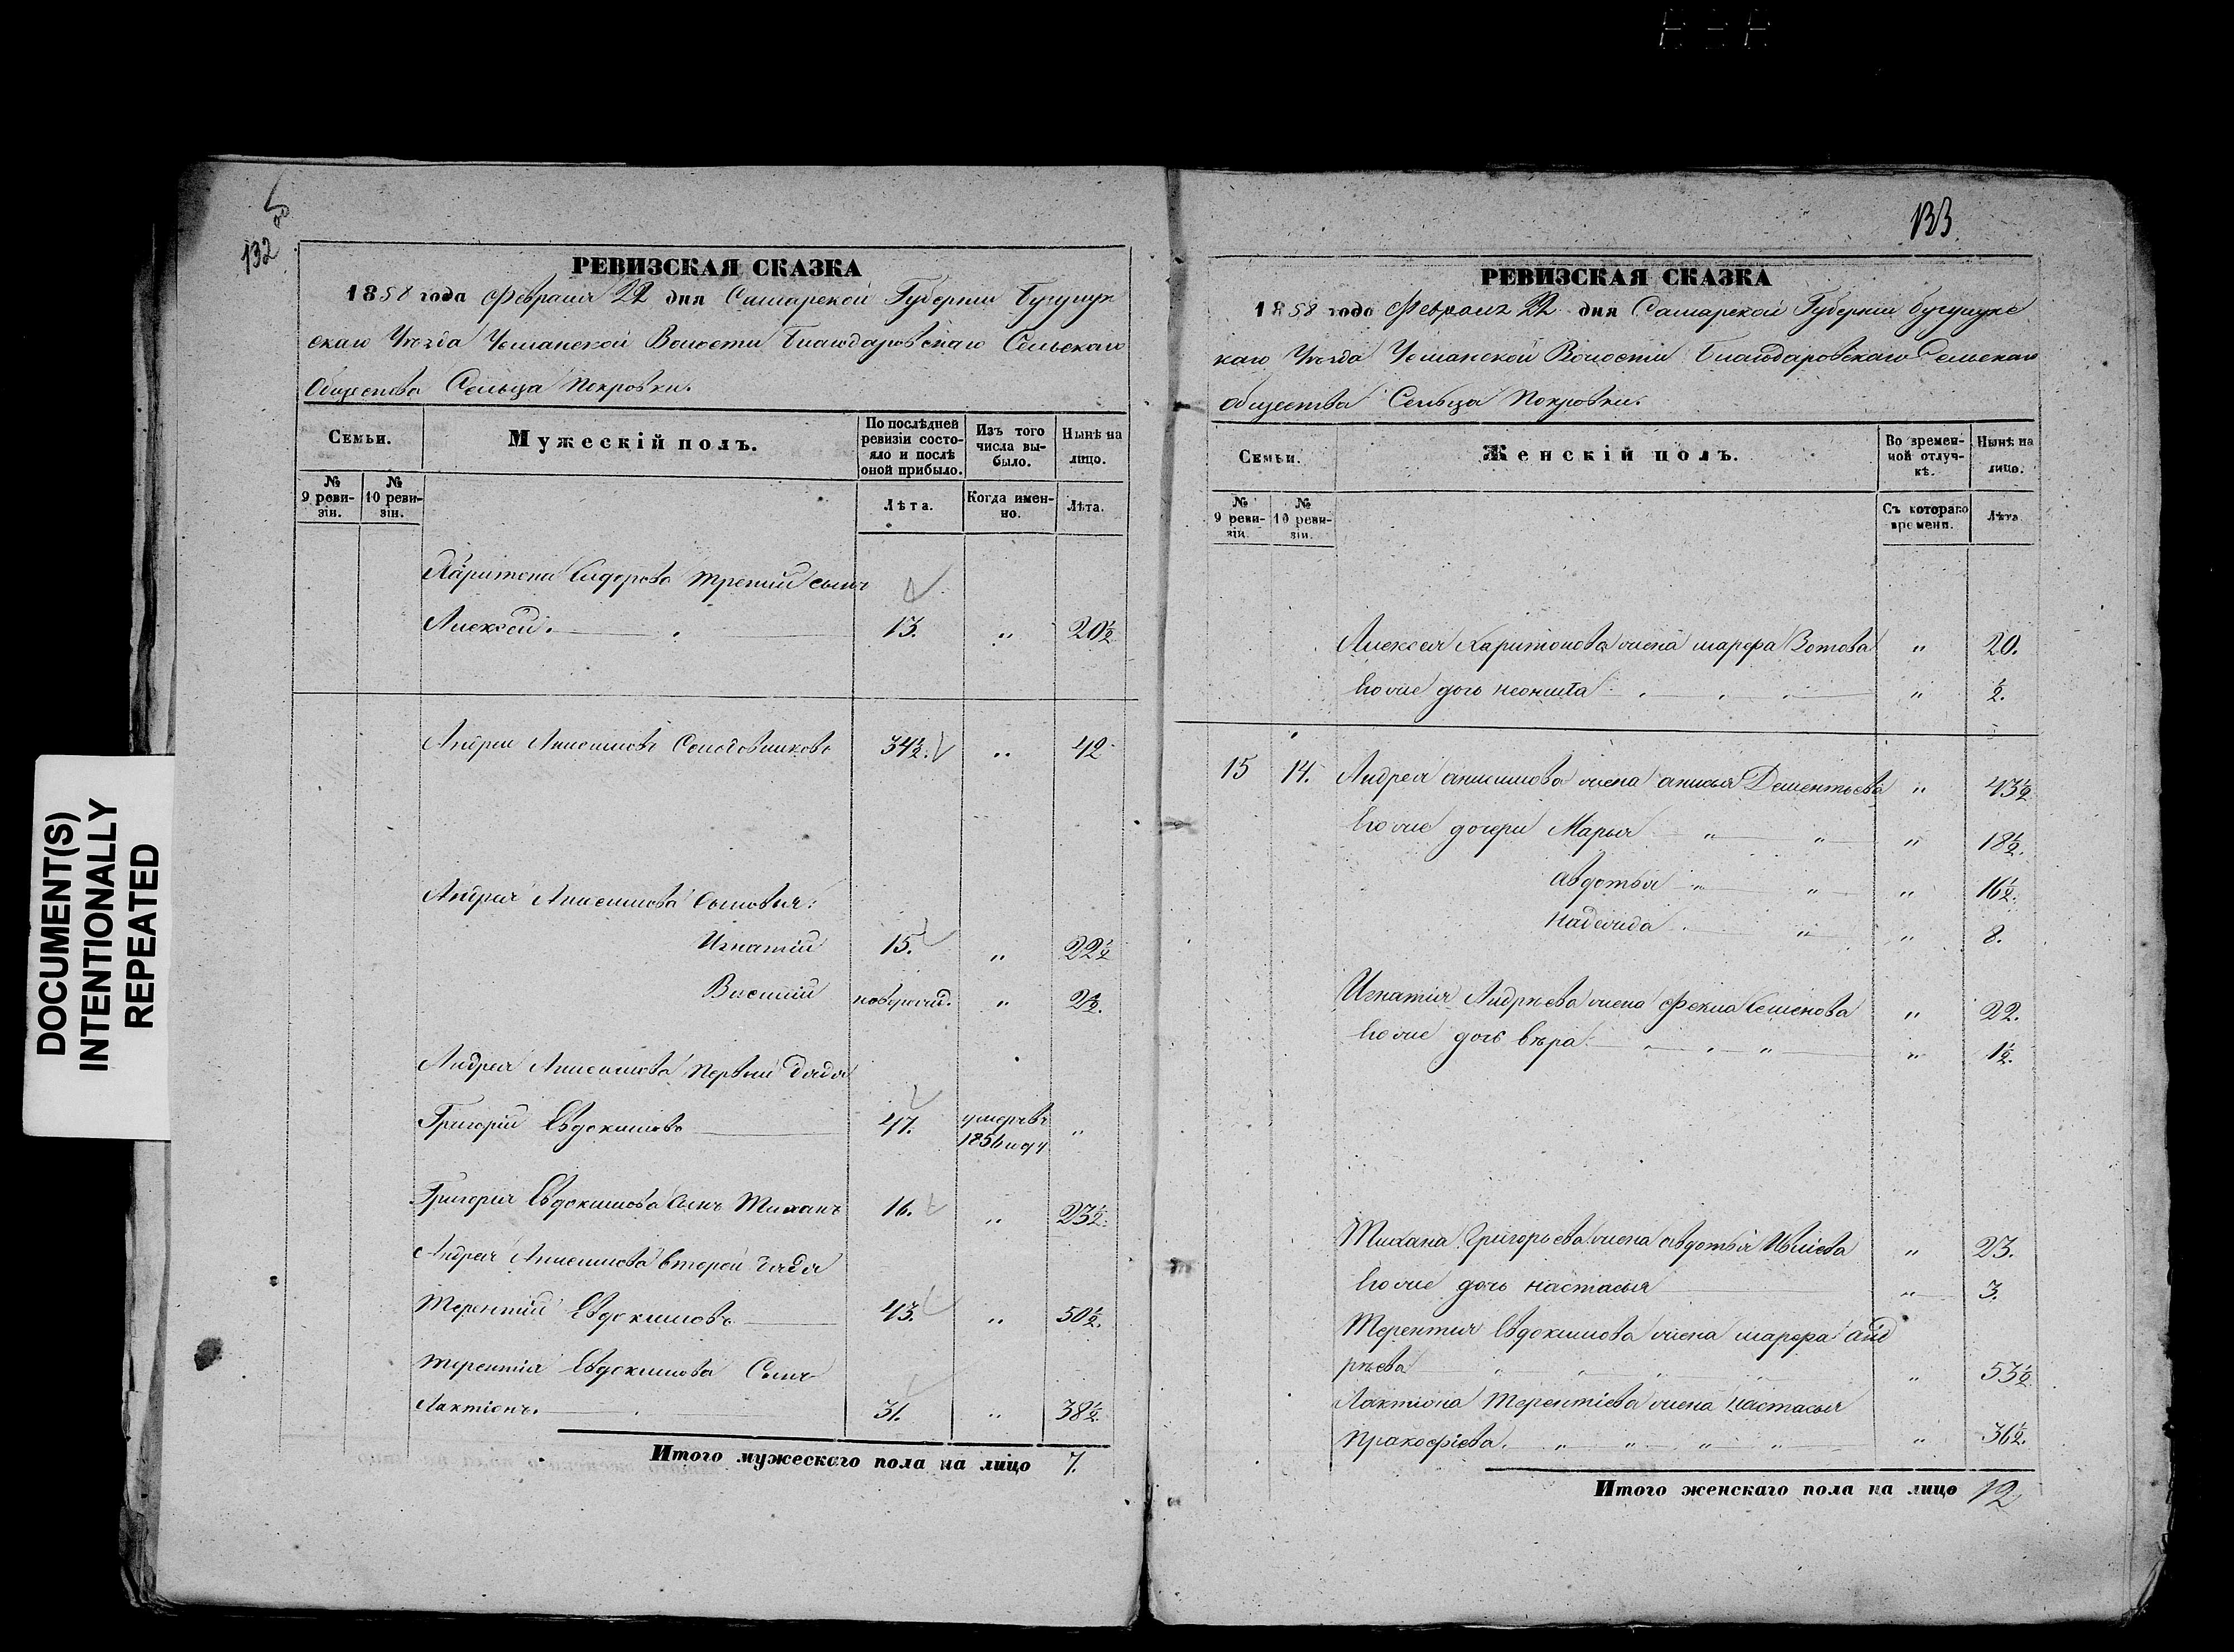 132
РЕВИЗСКАЯ СКАЗКА
1858 года Февраля 22 дня Самарской Губернии Бугурус
скаго Уѣзда Чоманской Волости Благодаровскаго Сельскаго
Общества Сельца Покровки.
Семьи. Мужескій полъ. По послѣдней ревизіи состояло и послѣ оной прибыло. Изъ того числа выбыло. Нынѣ на лицо.
№ 9 ревизіи. № 10 ревизіи. Лѣта. Когда именно. Лѣта.
Харитона Сидорова третий сынъ
Алексей. 13. „ 20½
Андрей Анисимовъ Солодовниковъ 34½. „ 42
Андрея Анисимова Сыновья:
Игнатий 15. „ 22½
Василий новорожд. „ 2½.
Андрея Анисимова первый дядя
Григорий Евдокимовъ 47. умеръ въ
1856 году „
Григория Евдокимова Сынъ Тиханъ 16. „ 23½.
Андрея Анисимова второй дядя
Терентий Евдокимовъ 43. „ 50½.
Терентия Евдокимова Сынъ
Лактіонъ. 31. „ 38½.
Итого мужескаго пола на лицо 7.
133
РЕВИЗСКАЯ СКАЗКА
1858 года Февраля 22 дня Самарской Губернии Бугурус
скаго Уѣзда Чоманской Волости Благодаровскаго Сельскаго
Общества Сельца Покровки.
Семьи. Женскій полъ. Во временной отлучкѣ. Нынѣ на лицо.
№ 9 ревизіи. № 10 ревизіи. Съ котораго времени. Лѣта
Алексея Харитонова жена марфа Зотова „ 20.
Его же дочь неонила „ ½.
15 14. Андрея анисимова жена анисья Дементьева „ 43½
Его же дочери Марья „ „ „ 18½.
авдотья „ „ „ 16½.
надежда „ „ 8.
Игнатия Андрѣева жена Фекла Семенова „ 22.
Его же дочь вѣра „ „ 1½.
Тихана Григорьева жена авдотья „ 23.
Его же дочь настасья „ 3.
Терентия Евдокимова жена марфа анд
рѣева „ 53½
Лактіона Терентіева жена настасья
Пракофіева. „ „ „ „ „ 36½.
Итого женскаго пола на лицо 12
DOCUMENT(S)
INTENTIONALLY
REPEATED